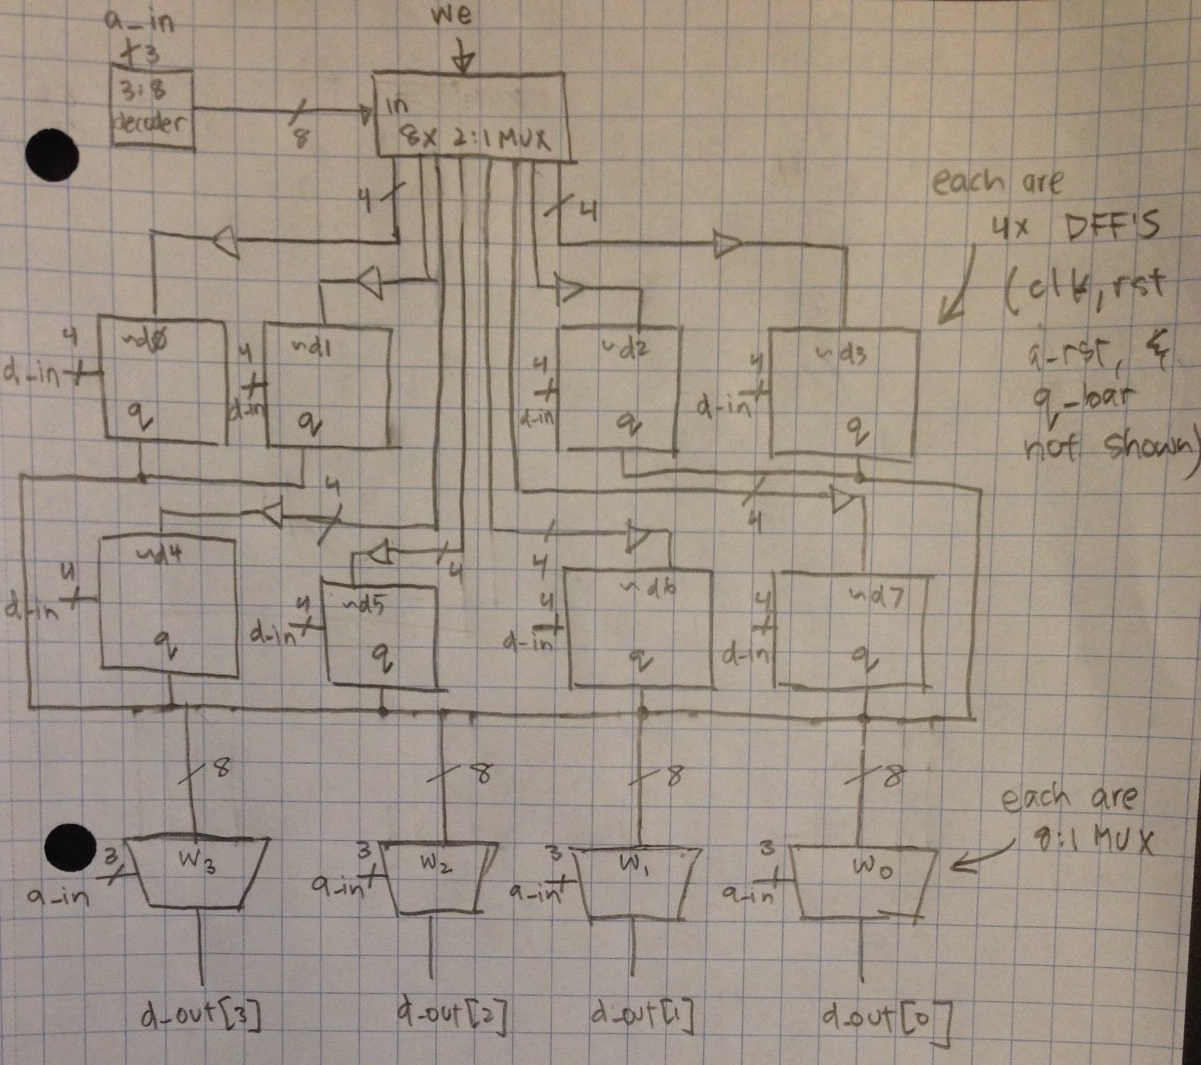 a_in
3
3:8
decoder
8
we
in
8X 2:1 MUX
4
4
each are
4x DFF'S
(clk, rst
a-rst, &
q_bar
not shown)
4
d_in
wd0
q
4
d_in
wd1
q
4
d_in
wd2
q
4
d_in
wd3
q
4
4
4
4
4
d_in
wd4
q
4
d_in
wd5
q
4
d_in
wd6
q
4
d_in
wd7
q
8
8
8
8
each are
8:1 MUX
3
a_in
W3
3
a_in
W2
3
a_in
W1
3
a_in
W0
d_out[3]
d_out[2]
d_out[1]
d_out[0]